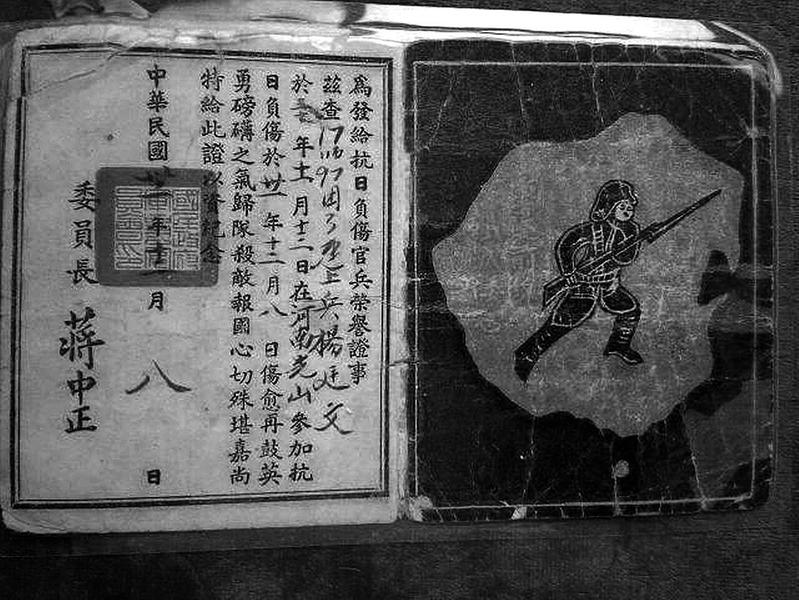 為發給抗日負傷官兵榮譽證事
茲查 上兵楊廷文
於 年十一月十二日在河南光山參加抗
日負傷於廿一年十二月八日傷愈再鼓英
勇磅礡之氣歸隊殺敵報國心切殊堪嘉尚
特給此證以資紀念
中華民國 年十二月八日
委員長 蔣中正